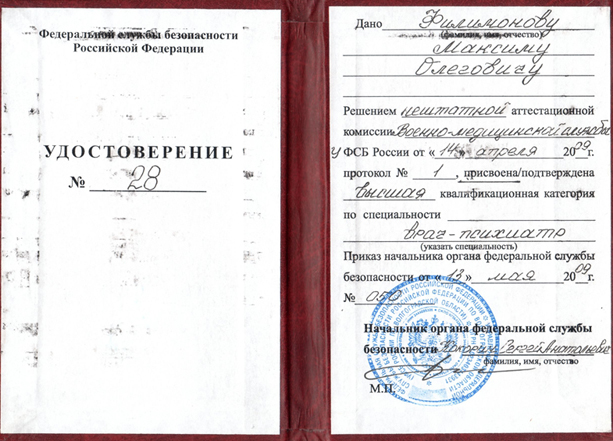 Федеральной службы безопасности
Российской Федерации
УДОСТОВЕРЕНИЕ
№ 28
Дано Филимонову
(фамилия, имя, отчество)
Максиму
Олеговичу
Решением нештатной аттестационной
комиссии Военно-медицинской службы
У ФСБ России от « 14 » апреля 2009г.
протокол № 1 , присвоена/подтверждена
высшая квалификационная категория
по специальности
врач-психиатр
(указать специальность)
Приказ начальника органа федеральной службы
безопасности от « 13 » мая 2009 г.
№ 050
Начальник органа федеральной службы
безопасности Кокорин Сергей Анатольевич
фамилия, имя, отчество
М.П.